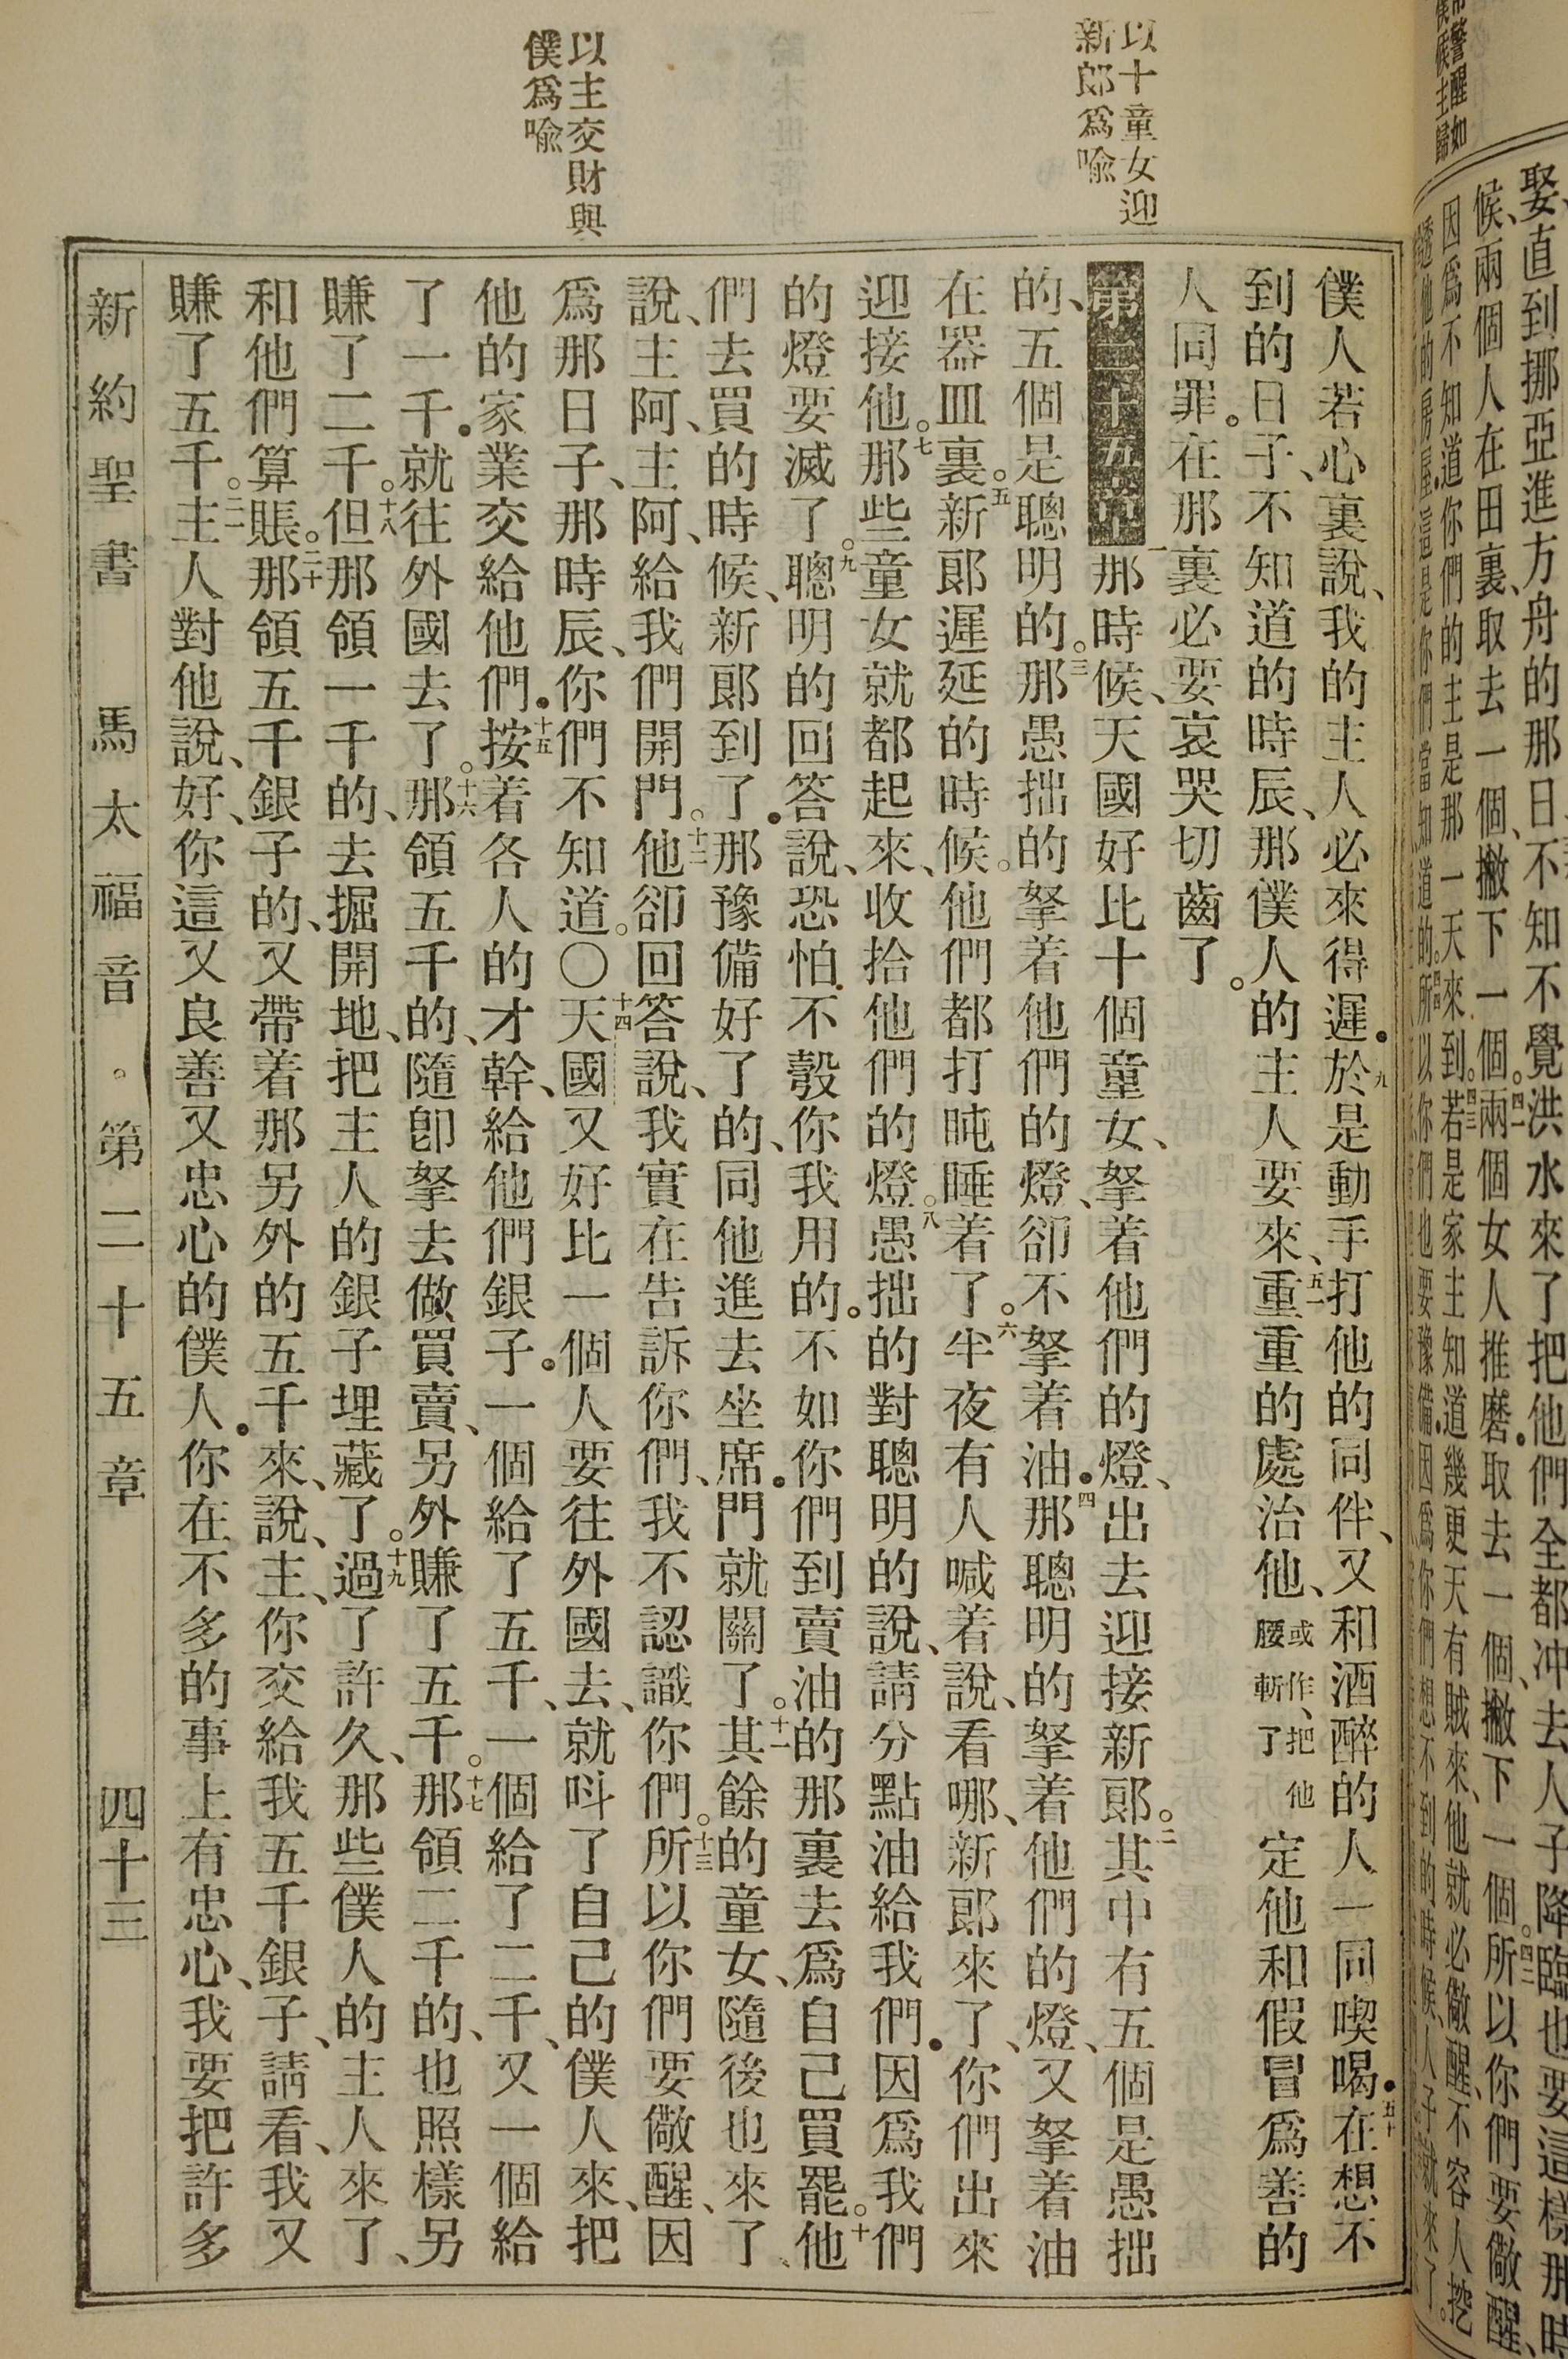 常警醒如
僕候主歸
娶、直到挪亞進方舟的那日不知不覺洪水來了把他們全都冲去人子降臨也要這樣那時
候、兩個人在田裏、取去一個、撇下一個。四一兩個女人推磨．取去一個、撇下一個。四二所以你們要儆醒、
因爲不知道你們的主是那一天來到。四三若是家主知道幾更天有賊來、他就必儆醒、不容人挖
透他的房屋．這是你們當知道的。四四所以你們也要豫備．因爲你們想不到的時候、人子就來了。
以十童女迎
新郎爲喩
以主交財與
僕爲喩
僕人若心裏說、我的主人必來得遲．四九於是動手打他的同伴、又和酒醉的人一同喫喝．五十在想不
到的日子、不知道的時辰、那僕人的主人要來、五一重重的處治他、或作、把他腰斬了定他和假冒爲善的
人同罪。在那裏必要哀哭切齒了。
第二十五章一那時候、天國好比十個童女、拏着他們的燈、出去迎接新郎。二其中有五個是愚拙
的、五個是聰明的。三那愚拙的拏着他們的燈、卻不拏着油．四那聰明的拏着他們的燈、又拏着油
在器皿裏。五新郎遲延的時候。他們都打盹睡着了。六半夜有人喊着說、看哪、新郎來了、你們出來
迎接他。七那些童女就都起來、收拾他們的燈。八愚拙的對聰明的說、請分點油給我們．因爲我們
的燈要滅了。九聰明的回答說、恐怕．不彀你我用的．不如你們到賣油的那裏去爲自己買罷。十他
們去買的時候、新郎到了．那豫備好了的、同他進去坐席．門就關了。十一其餘的童女、隨後也來了、
說、主阿、主阿、給我們開門。十二他卻回答說、我實在告訴你們、我不認識你們。十三所以你們要儆醒、因
爲那日子、那時辰、你們不知道。〇十四天國又好比一個人要往外國去、就呌了自己的僕人來、把
他的家業交給他們．十五按着各人的才幹、給他們銀子．一個給了五千、一個給了二千、又一個給
了一千．就往外國去了。十六那領五千的、隨卽拏去做買賣、另外賺了五千。十七那領二千的、也照樣另
賺了二千。十八但那領一千的、去掘開地、把主人的銀子埋藏了。十九過了許久、那些僕人的主人來了、
和他們算賬。二十那領五千銀子的、又帶着那另外的五千來、說、主、你交給我五千銀子、請看、我又
賺了五千。二一主人對他說、好、你這又良善又忠心的僕人．你在不多的事上有忠心、我要把許多
新約聖書　馬太福音。第二十五章　四十三